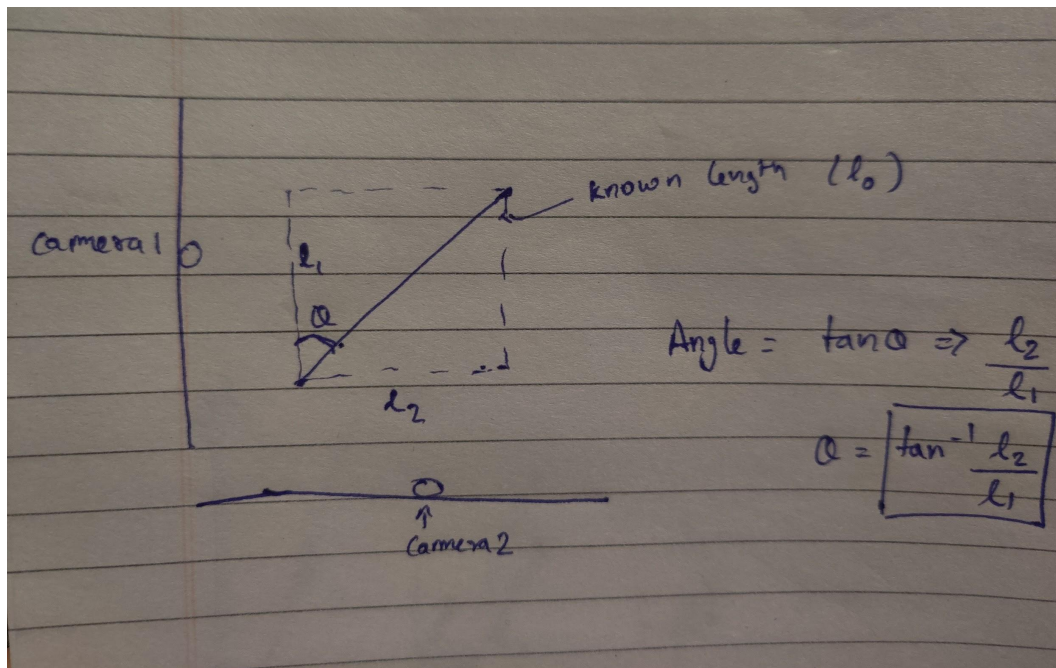 known length (l₀)
camera 1
l₁
θ
Angle = tanθ => l₂/l₁
l₂
θ = tan⁻¹ l₂/l₁
Camera 2